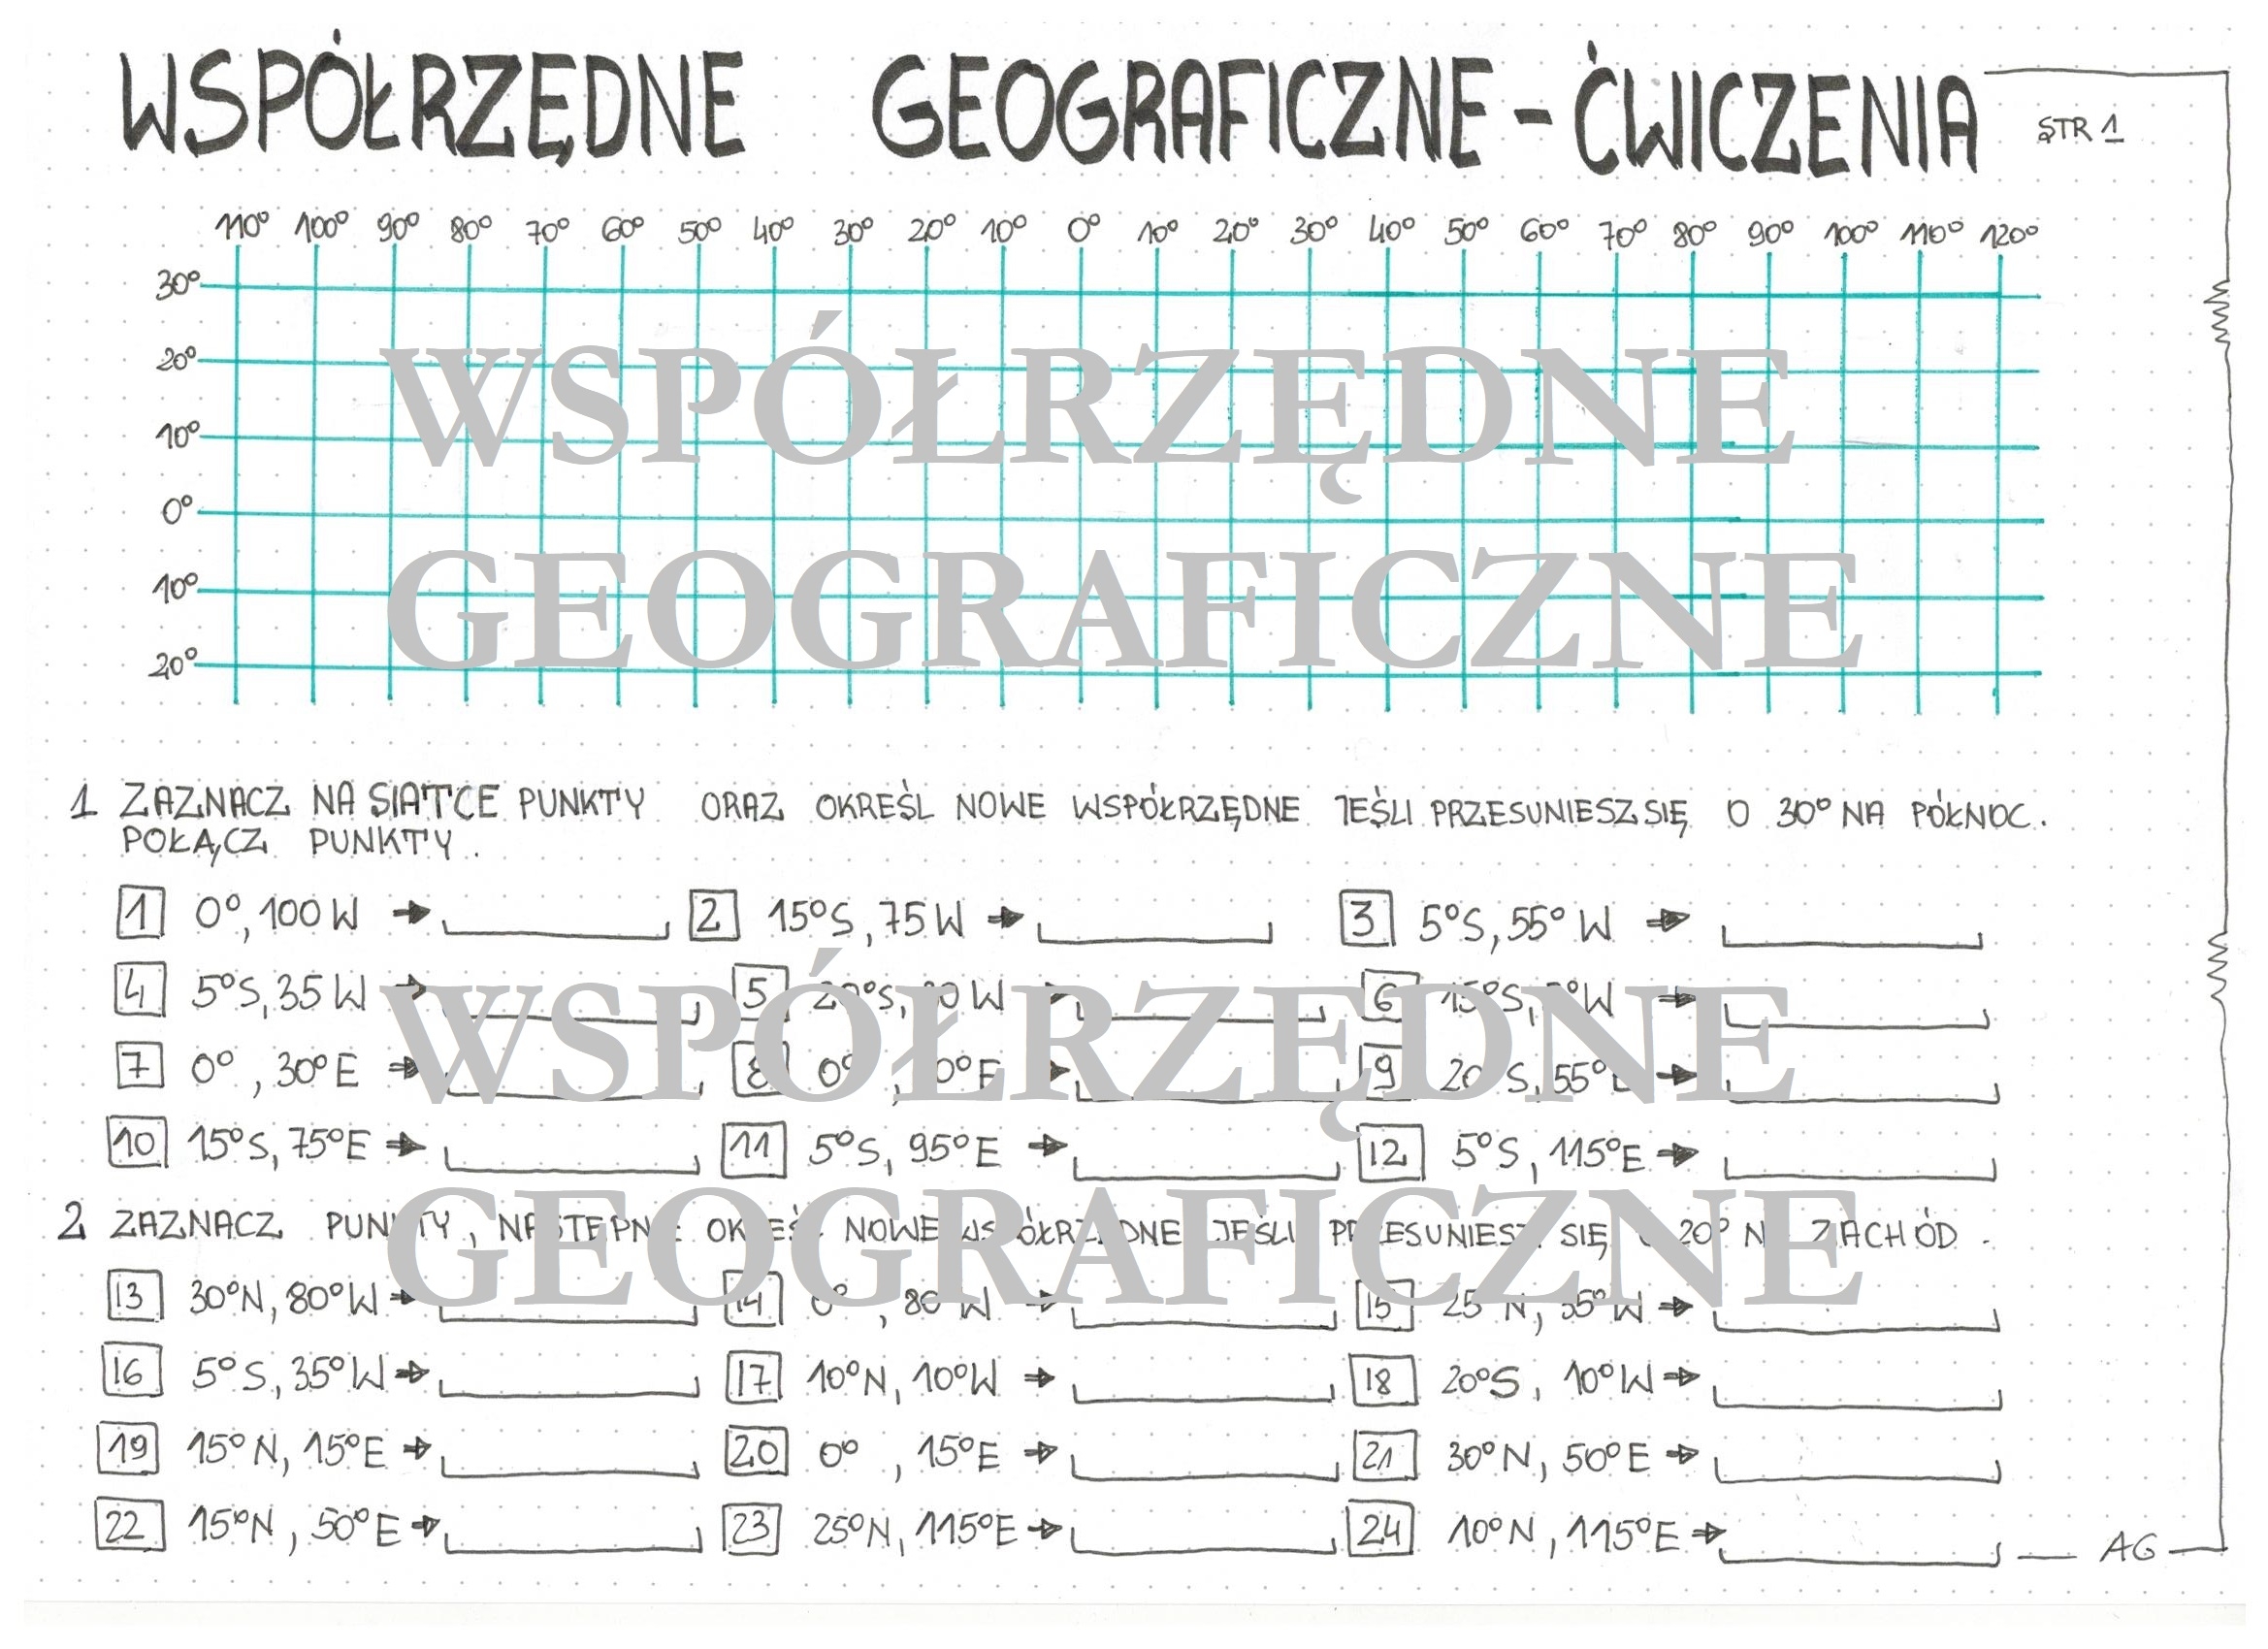 WSPÓŁRZĘDNE GEOGRAFICZNE - ĆWICZENIA STR 1
110° 100° 90° 80° 70° 60° 50° 40° 30° 20° 10° 0° 10° 20° 30° 40° 50° 60° 70° 80° 90° 100° 110° 120°
30°
20°
WSPÓŁRZĘDNE
10°
0°
10°
GEOGRAFICZNE
20°
1 ZAZNACZ NA SIATCE PUNKTY ORAZ OKREŚL NOWE WSPÓŁRZĘDNE JEŚLI PRZESUNIESZ SIĘ O 30° NA PÓŁNOC.
POŁĄCZ PUNKTY.
1 0°, 100 W → 2 15°S, 75 W → 3 5°S, 55° W →
4 5°S, 35 W → 5 W → 6 15°S, W →
WSPÓŁRZĘDNE
7 0°, 30°E → 8 0°, E → 9 20°S, 55°E →
10 15°S, 75°E → 11 5°S, 95°E → 12 5°S, 115°E →
2 ZAZNACZ PUNKTY, NASTĘPNIE OKREŚL NOWE WSPÓŁRZĘDNE JEŚLI PRZESUNIESZ SIĘ O 20° NA ZACHÓD.
GEOGRAFICZNE
13 30°N, 80°W → 14 0°, 80°W → 15 25°N, W →
16 5°S, 35°W → 17 10°N, 10°W → 18 20°S, 10°W →
19 15°N, 15°E → 20 0°, 15°E → 21 30°N, 50°E →
22 15°N, 50°E → 23 25°N, 115°E → 24 10°N, 115°E →
AG